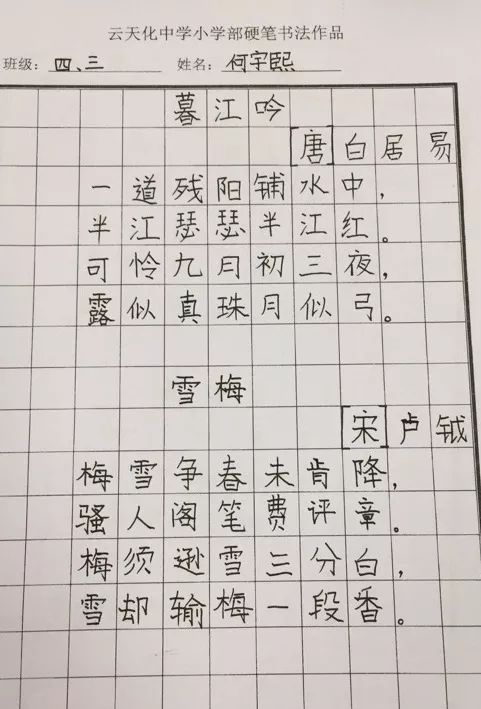 云天化中学小学部硬笔书法作品
班级：四、三 姓名：何宇熙
暮江吟
[唐]白居易
一道残阳铺水中，
半江瑟瑟半江红。
可怜九月初三夜，
露似真珠月似弓。
雪梅
[宋]卢钺
梅雪争春未肯降，
骚人阁笔费评章。
梅须逊雪三分白，
雪却输梅一段香。